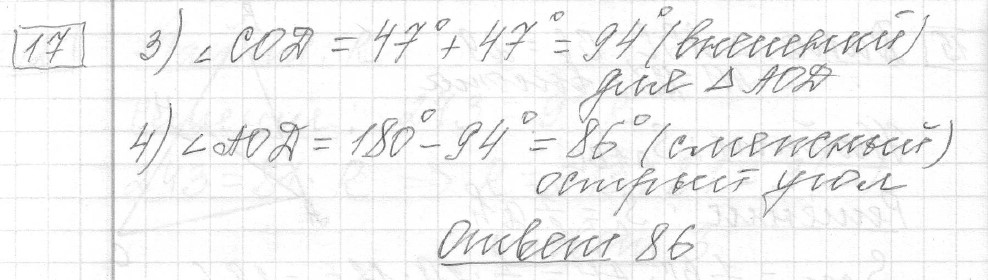 17 3) ∠ СОД = 47° + 47° = 94° (внешний)
для △ АОД
4) ∠ АОД = 180° - 94° = 86° (смежный)
острый угол
Ответ 86